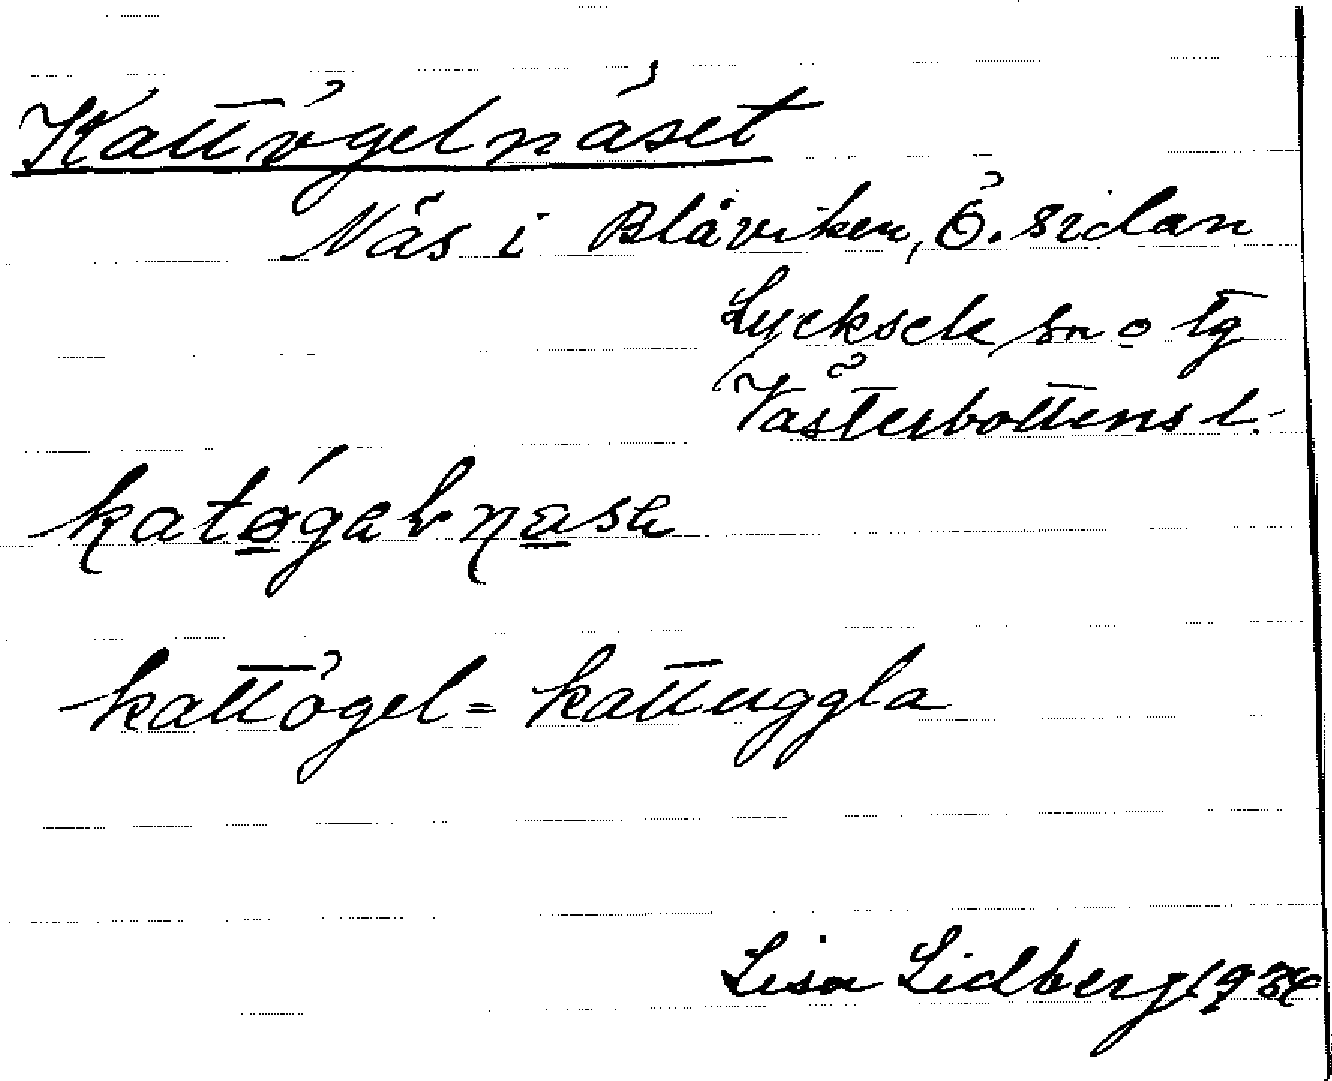 Kattögelnäset
Näs i Blåviken, Ö. sidan
Lycksele sn o tg
Västerbottens l.
katögelnäse
kattögel = kattuggla
Lisa Lidberg 1934